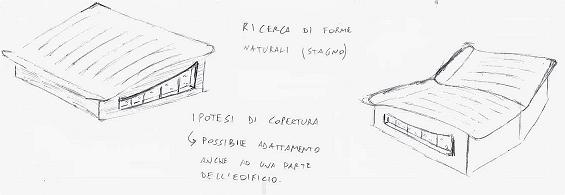 RICERCA DI FORME
NATURALI (STAGNO)
IPOTESI DI COPERTURA
↳ POSSIBILE ADATTAMENTO
ANCHE AD UNA PARTE
DELL'EDIFICIO.